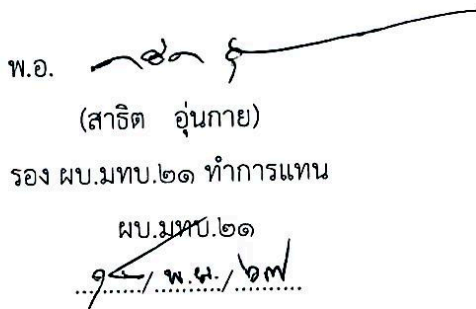 พ.อ.
(สาธิต อุ่นกาย)
รอง ผบ.มทบ.๒๑ ทำการแทน
ผบ.มทบ.๒๑
/ พ.ย. / ๖๗